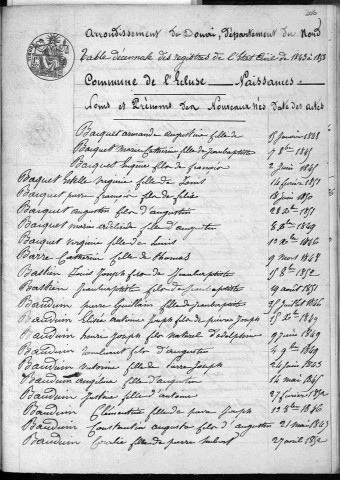 Arrondissement de Douai, département du Nord
Table décennale des registres de l'état Civil de 1843 à 1853
Commune de l'Ecluse Naissances
Noms et Prénoms des Nouveaux nés Date des actes
Bacquet armandine augustine fille de 15 janvier 1848
Bacquet marie Catherine fille de jeanbaptiste 4 8bre 1845
Bacquet Eugène filor de françois 2 juin 1845
Bacquet Estelle virginie fille de Louis 14 février 1851
Bacquet pierre françois filor de félix 18 juin 1850
Bacquet augustin filor d'augustin 28 xbre 1851
Bacquet marie adélaïde fille d'augustin 8 8bre 1849
Bacquet virginie fille de Louis 13 xbre 1846
Barre Catherine fille de thomas 9 mars 1844
Bastien Louis Joseph filor de jeanbaptiste 15 8bre 1852
Bastien jeanbaptiste filor de jeanbaptiste 19 août 1851
Bauduin pierre Guillain filor de jeanbaptiste 25 juillet 1846
Bauduin Eloïse antoine Joseph filor de pierre Joseph 15 xbre 1849
Bauduin henri joseph filor naturel d'adolphine 9 juin 1849
Bauduin filor d'augustin 4 9bre 1849
Bauduin antoine fille de pierre Joseph 24 juin 1843
Bauduin angeline fille d'augustin 14 mai 1845
Bauduin Justine fille d'antoine 27 février 1852
Bauduin Clémentine fille de pierre Joseph 13 8bre 1846
Bauduin Constantin augustin filor d'augustin 21 mai 1847
Bauduin Coralie fille de pierre hubert 27 avril 1852